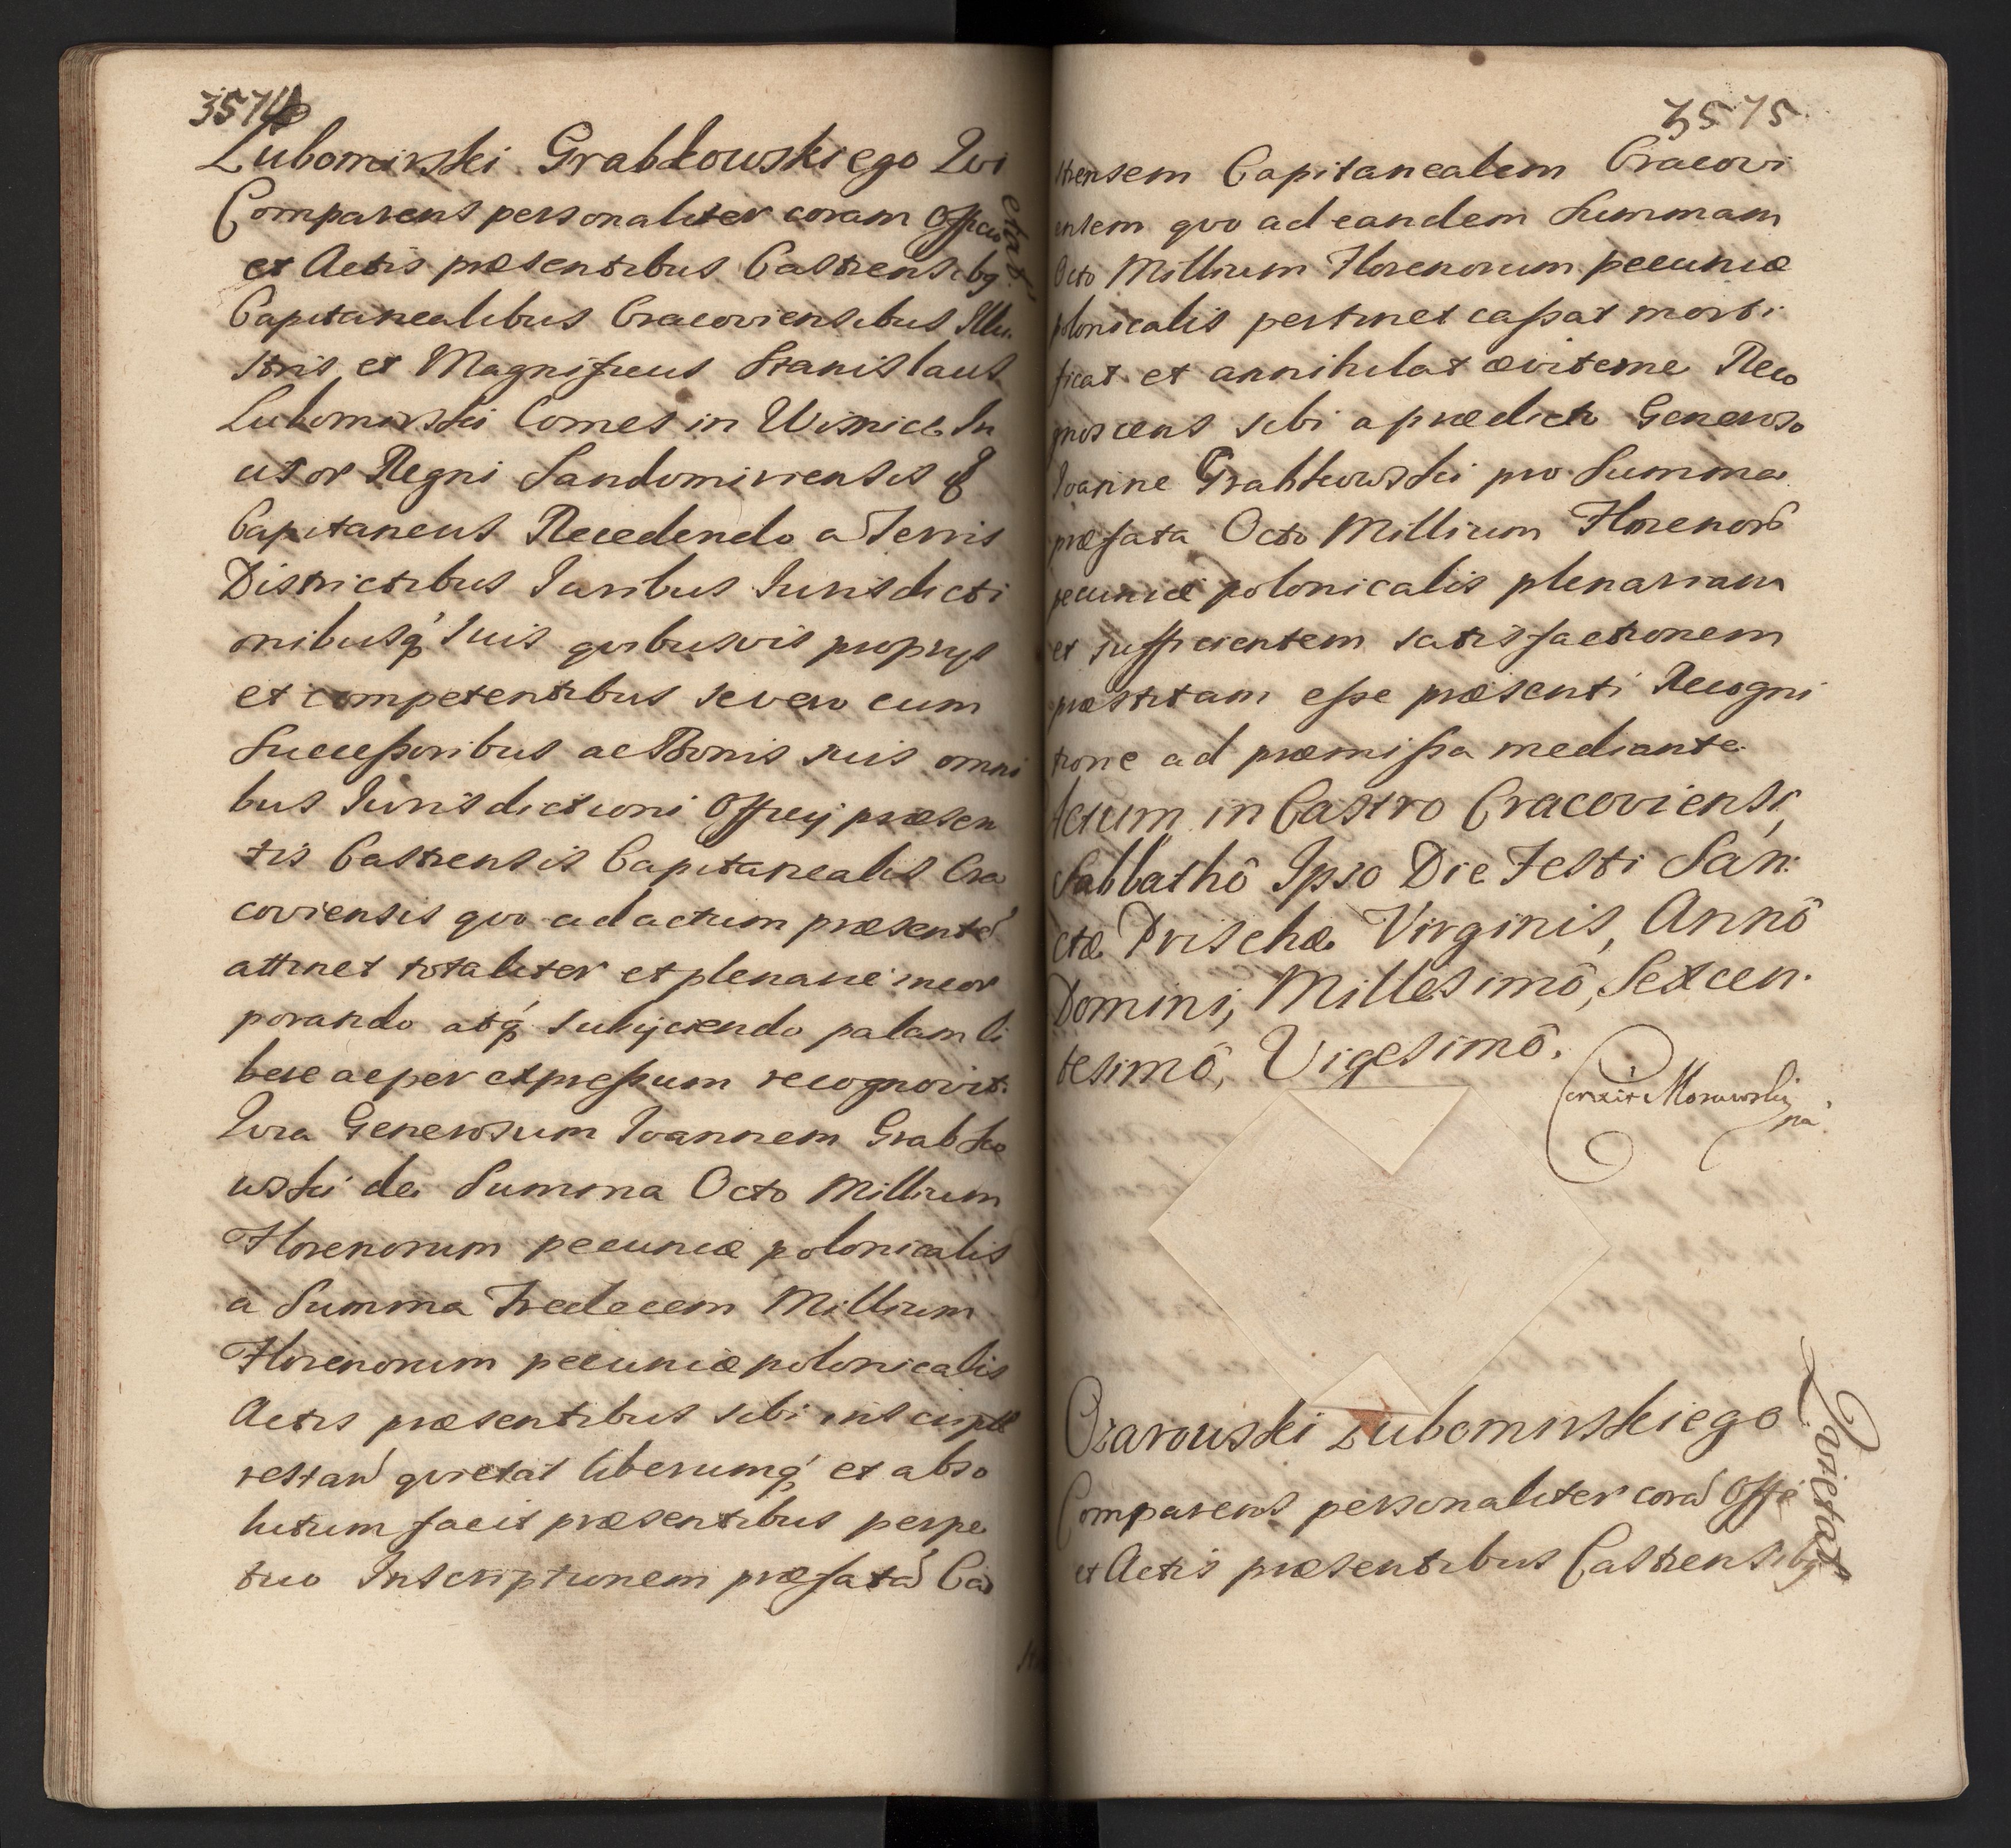 3574
Lubomirski Grabkowskiego Qvi
etat
Comparens personaliter coram Officio
et Actis præsentibus Castrensibq
Capitanealibus Cracoviensibus Illu
stris et Magnificus Stanislaus
Lubomirski Comes in Wisnicz In
cisor Regni Sandomiriensis
Capitaneus Recedendo a Terris
Districtibus Iuribus Iurisdicti
onibusq́ suis qvibusvis proprys
et competentibus se vero cum
Succeſsoribus ac Bonis suis omni
bus Iurisdictioni Officy præsen
tis Castrensis Capitanealis Cra
coviensis qvo ad actum præsentẽ
attinet totaliter et plenarie incor
porando atq́ subijciendo palam li
bere ac per expreſsum recognovit.
Qvia Generosum Ioannem Grabko
wski de Summa Octo Millium
Florenorum pecuniæ polonicalis
a Summa Tredecem Millium
Florenorum pecuniæ polonicalis
Actis præsentibus sibi inscriptæ
restañ qvietat liberumq́ et abso
lutum facit præsentibus perpe
tuo Inscriptionem præfatã Ca
3575
strensem Capitanealem Cracovi
ensem qvo ad eandem Summam
Octo Millium Florenorum pecuniæ
polonicalis pertinet caſsat morti
ficat et annihilat æviterne Reco
gnoscens sibi a prædicto Generoso
Ioanne Grabkowski pro Summa
præfata Octo Millium Florenorũ
pecuniæ polonicalis plenariam
et sufficientem satisfactionem
præstitam eſse præsenti Recogni
tione ad præmiſsa mediante
Actum in Castro Cracoviensi,
Sabbathô Ipso Die Festi San:
ctæ Prischæ Virginis, Annô
Domini, Millesimô, Sexcen.
tesimô, Vigesimô.
Morawski
Ozarowski Lubomirskiego
Qvietat
Comparens personaliter corã Offi
et Actis præsentibus Castrensibq